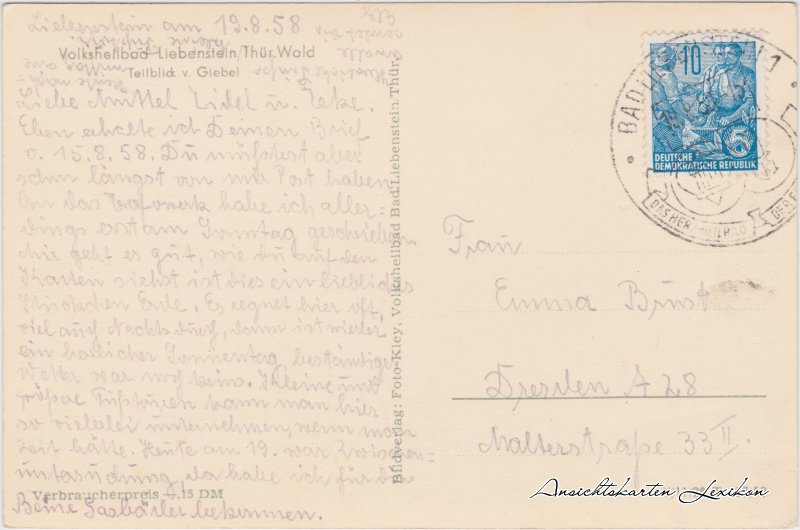 Liebenstein am 19.8.58
Volksheilbad Liebenstein/Thür. Wald
Teilblick v. Giebel
Liebe Muttel Liebel u.
Eben erhalte ich Deinen Brief
v. 15.8.58. Du müsstest aber
schon längst von mir Post haben.
An das habe ich aller-
dings erst am Sonntag geschrieben.
Mir geht es gut, wie Du auf den
Karten siehst ist dies ein liebliches
Fleckchen Erde. Es regnet hier oft,
viel auch Nachts durch, dann ist wieder
ein herrlicher Sonnentag, beständiges
Wetter war noch keins. Kleine und
grosse Fusstouren kann man hier
so vielerlei unternehmen, wenn man
Zeit hätte. Heute am 19. war Zwischen-
untersuchung, da habe ich für die
Verbraucherpreis -,15 DM
Beine Gasbäder bekommen.
Bildverlag: Foto-Kley, Volksheilbad Bad Liebenstein/Thür.
10
5
DEUTSCHE
DEMOKRATISCHE REPUBLIK
BAD LIEBENSTEIN 1
DAS HERZHEILBAD
DER
Frau
Emma Brust
Dresden A 28
Malterstraße 33 II
Ansichtskarten Lexikon